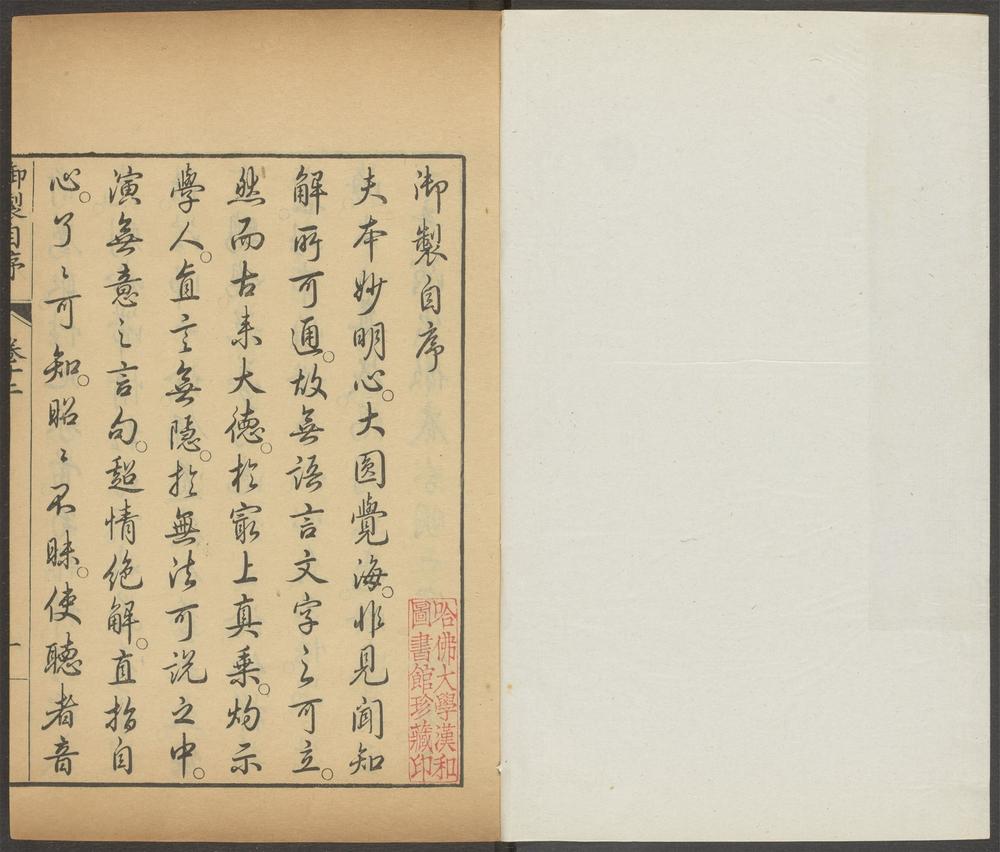 御製自序
夫本妙明心。大圓覺海。非見聞知
解所可通。故無語言文字之可立。
然而古来大德。於冣上真乗。灼示
學人。直言無隱。於無法可説之中。
演無意之言句。超情絶解。直指自
心。了〻可知。昭〻不昧。使聽者音
御製自序 卷十二 一
哈佛大學漢和
圖書館珍藏印